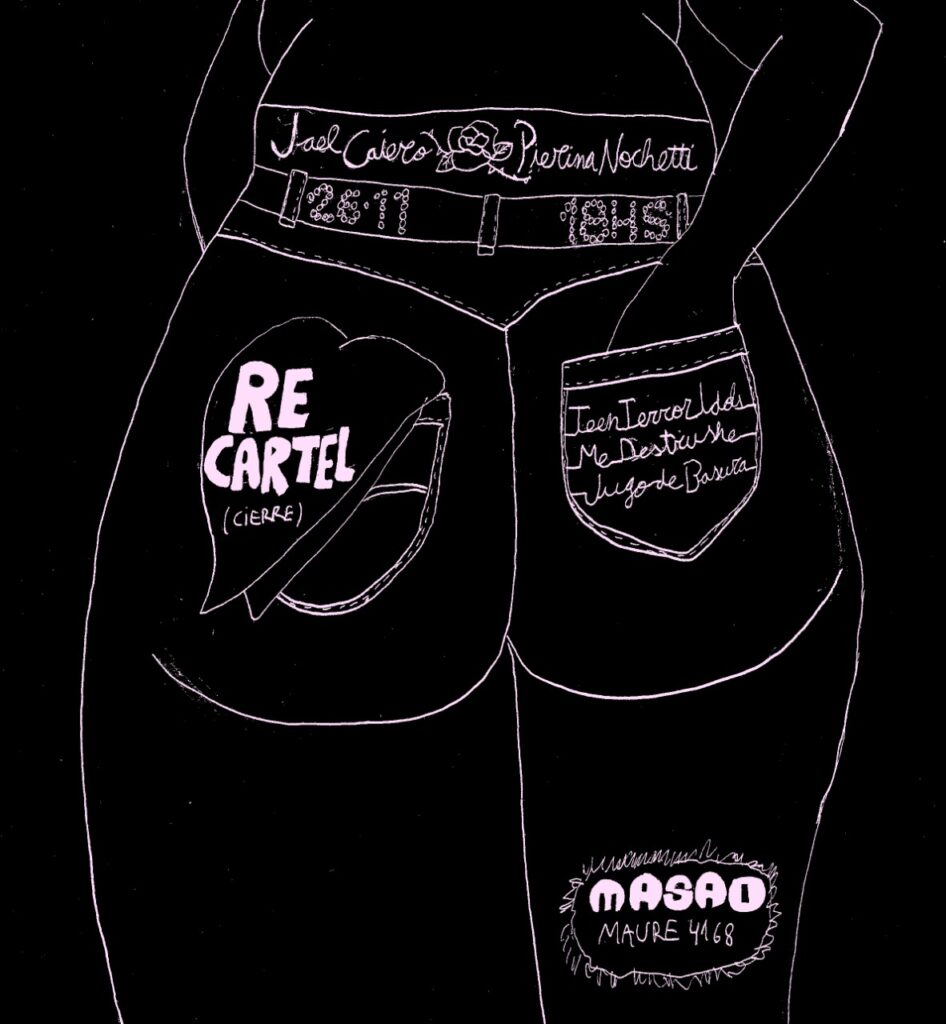 Jael Caiero Pierina Nochetti
26·11 19HS
RE
CARTEL
(CIERRE)
Teen Terror Idols
Me Destrushe
Jugo de Basura
MASAI
MAURE 4168